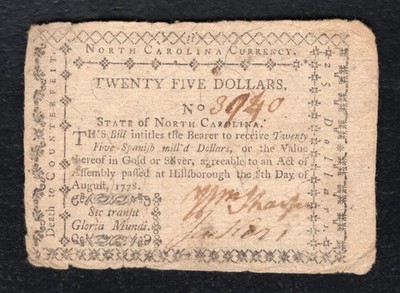 NORTH CAROLINA CURRENCY.
TWENTY FIVE DOLLARS.
No 3940
STATE OF NORTH CAROLINA.
TH'S Bill intitles the Bearer to receive Twenty
Five Spanish mill'd Dollars, or the Value
thereof in Gold or Silver, agreeable to an Act of
Assembly passed at Hillsborough the 8th Day of
August, 1778.
Sic transit
Gloria Mundi.
Wm Sharpe
Death to COUNTERFEIT.
25 Dollars